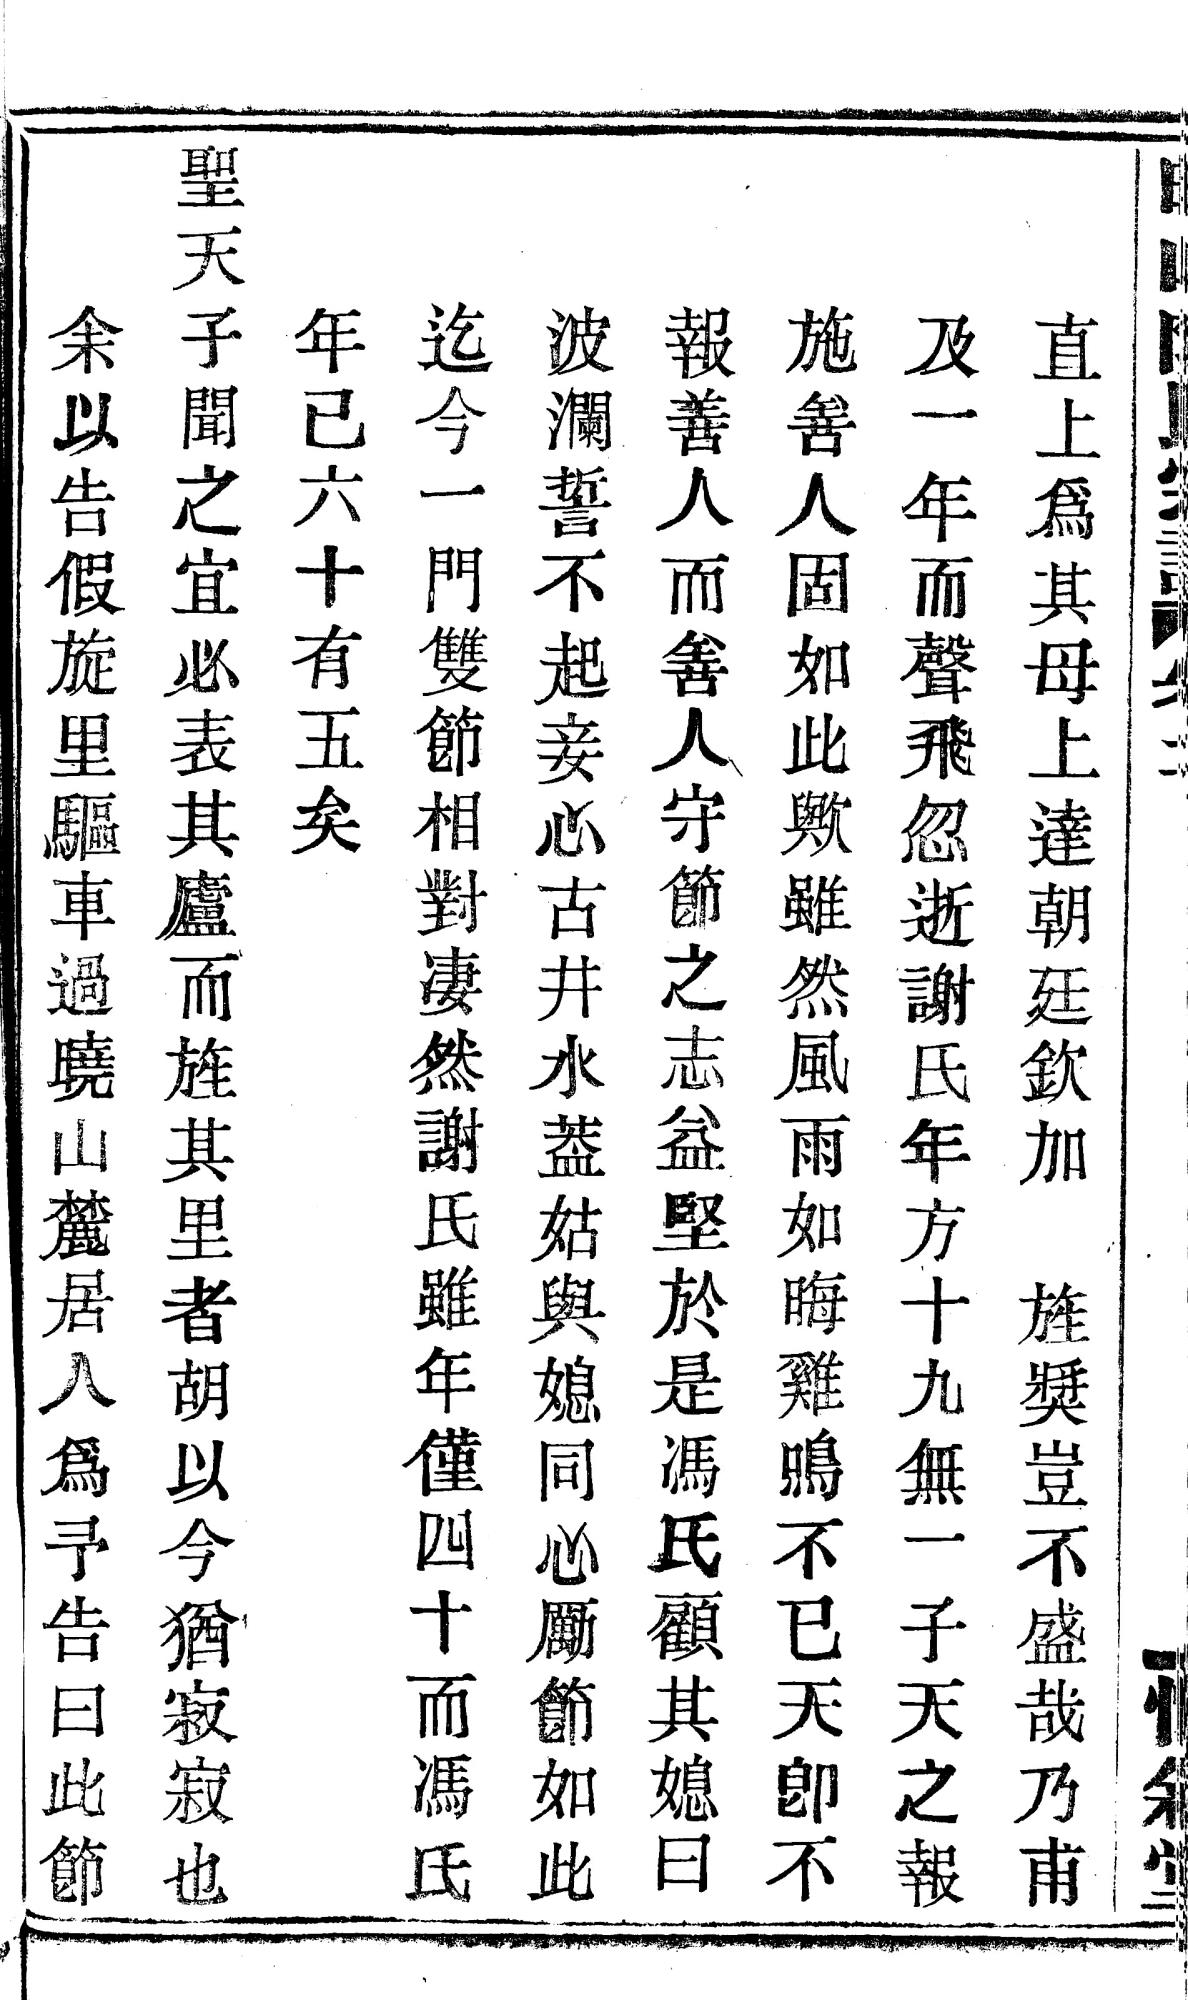 直上爲其母上達朝廷欽加　旌獎豈不盛哉乃甫
及一年而聲飛忽逝謝氏年方十九無一子天之報
施善人固如此歟雖然風雨如晦雞鳴不已天卽不
報善人而善人守節之志益堅於是馮氏顧其媳曰
波瀾誓不起妾心古井水葢姑與媳同心勵節如此
迄今一門雙節相對凄然謝氏雖年僅四十而馮氏
年已六十有五矣
聖天子聞之宜必表其廬而旌其里者胡以今猶寂寂也
余以告假旋里驅車過曉山麓居人爲予告曰此節